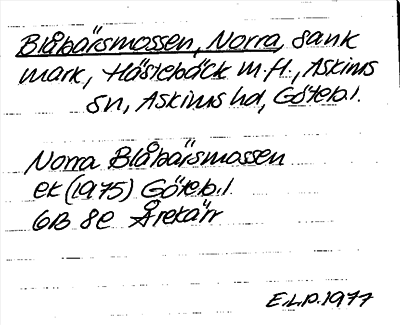 Blåbärsmossen, Norra, sank
mark, Hästebäck m.fl., Askims
sn, Askims hd, Göteb.l.
Norra Blåbärsmossen
ek (1975) Göteb.l
6B 8e Årekärr
E.L.P. 1977